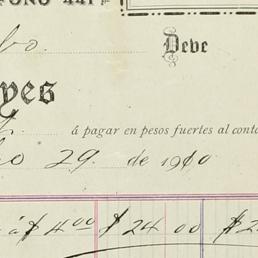 FONO 441
bo. Debe
yes
á pagar en pesos fuertes al conta
29. de 1910
á $ 4 00 $ 24 00 $ 2